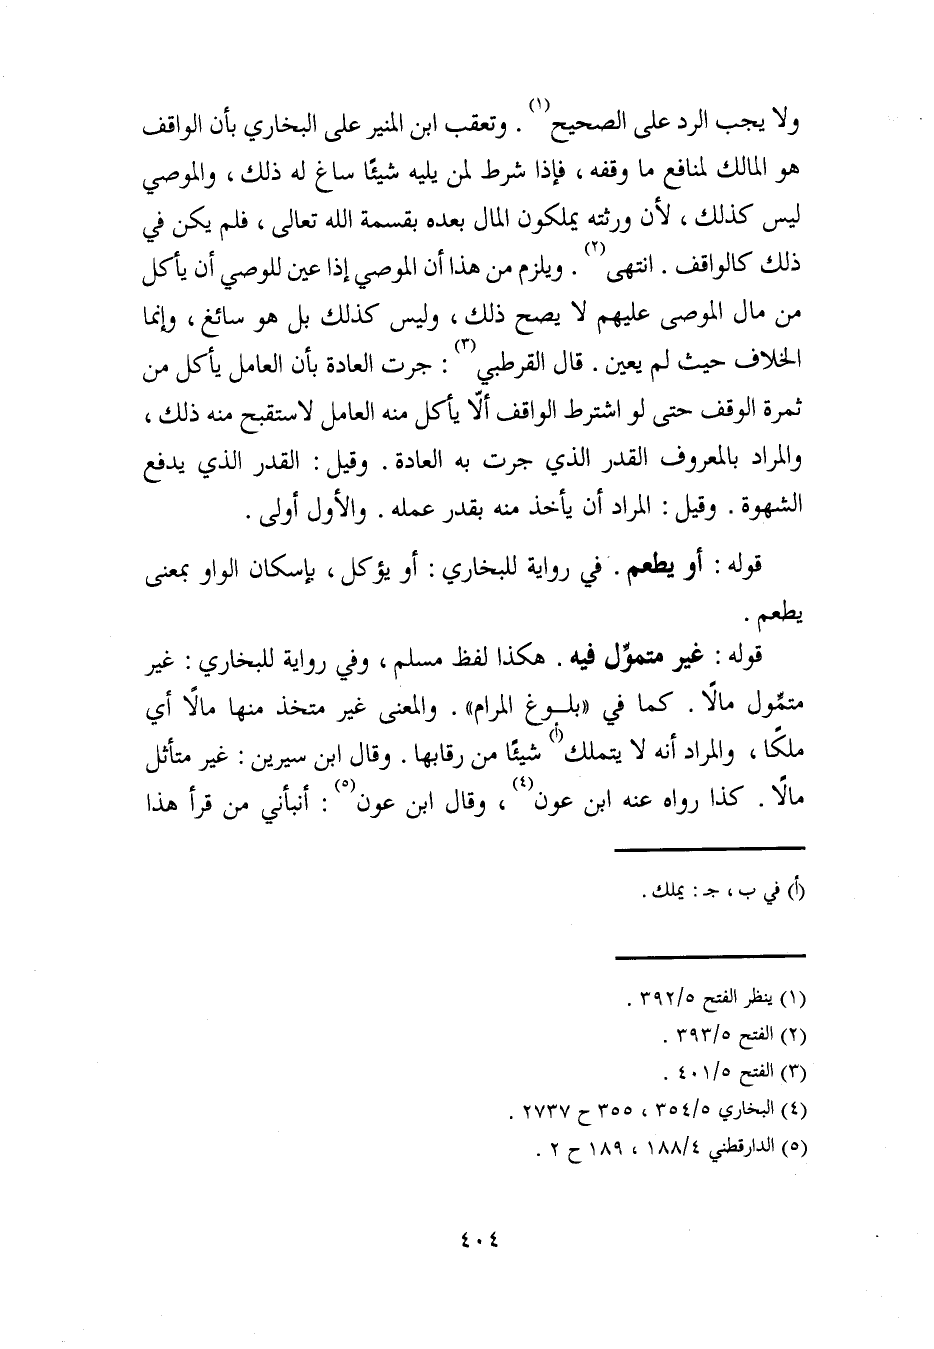 ولا يجب الرد على الصحيح(١) . وتعقب ابن المنير على البخاري بأن الواقف
هو المالك لمنافع ما وقفه ، فإذا شرط لمن يليه شيئًا ساغ له ذلك ، والموصي
ليس كذلك ، لأن ورثته يملكون المال بعده بقسمة الله تعالى ، فلم يكن في
ذلك كالواقف . انتهى(٢) . ويلزم من هذا أن الموصي إذا عين للوصي أن يأكل
من مال الموصى عليهم لا يصح ذلك ، وليس كذلك بل هو سائغ ، وإنما
الخلاف حيث لم يعين . قال القرطبي(٣) : جرت العادة بأن العامل يأكل من
ثمرة الوقف حتى لو اشترط الواقف ألّا يأكل منه العامل لاستقبح منه ذلك ،
والمراد بالمعروف القدر الذي جرت به العادة . وقيل : القدر الذي يدفع
الشهوة . وقيل : المراد أن يأخذ منه بقدر عمله . والأول أولى .
قوله : أو يطعم . في رواية للبخاري : أو يؤكل ، بإسكان الواو بمعنى
يطعم .
قوله : غير متموِّل فيه . هكذا لفظ مسلم ، وفي رواية للبخاري : غير
متمِّول مالًا . كما في «بلـوغ المرام» . والمعنى غير متخذ منها مالًا أي
ملكًا ، والمراد أنه لا يتملك(أ) شيئًا من رقابها . وقال ابن سيرين : غير متأثل
مالًا . كذا رواه عنه ابن عون(٤) ، وقال ابن عون(٥) : أنبأني من قرأ هذا
(أ) في ب ، جـ : يملك .
(١) ينظر الفتح ٣٩٢/٥ .
(٢) الفتح ٣٩٣/٥ .
(٣) الفتح ٤٠١/٥ .
(٤) البخاري ٣٥٤/٥ ، ٣٥٥ ح ٢٧٣٧ .
(٥) الدارقطني ١٨٨/٤ ، ١٨٩ ح ٢ .
٤٠٤